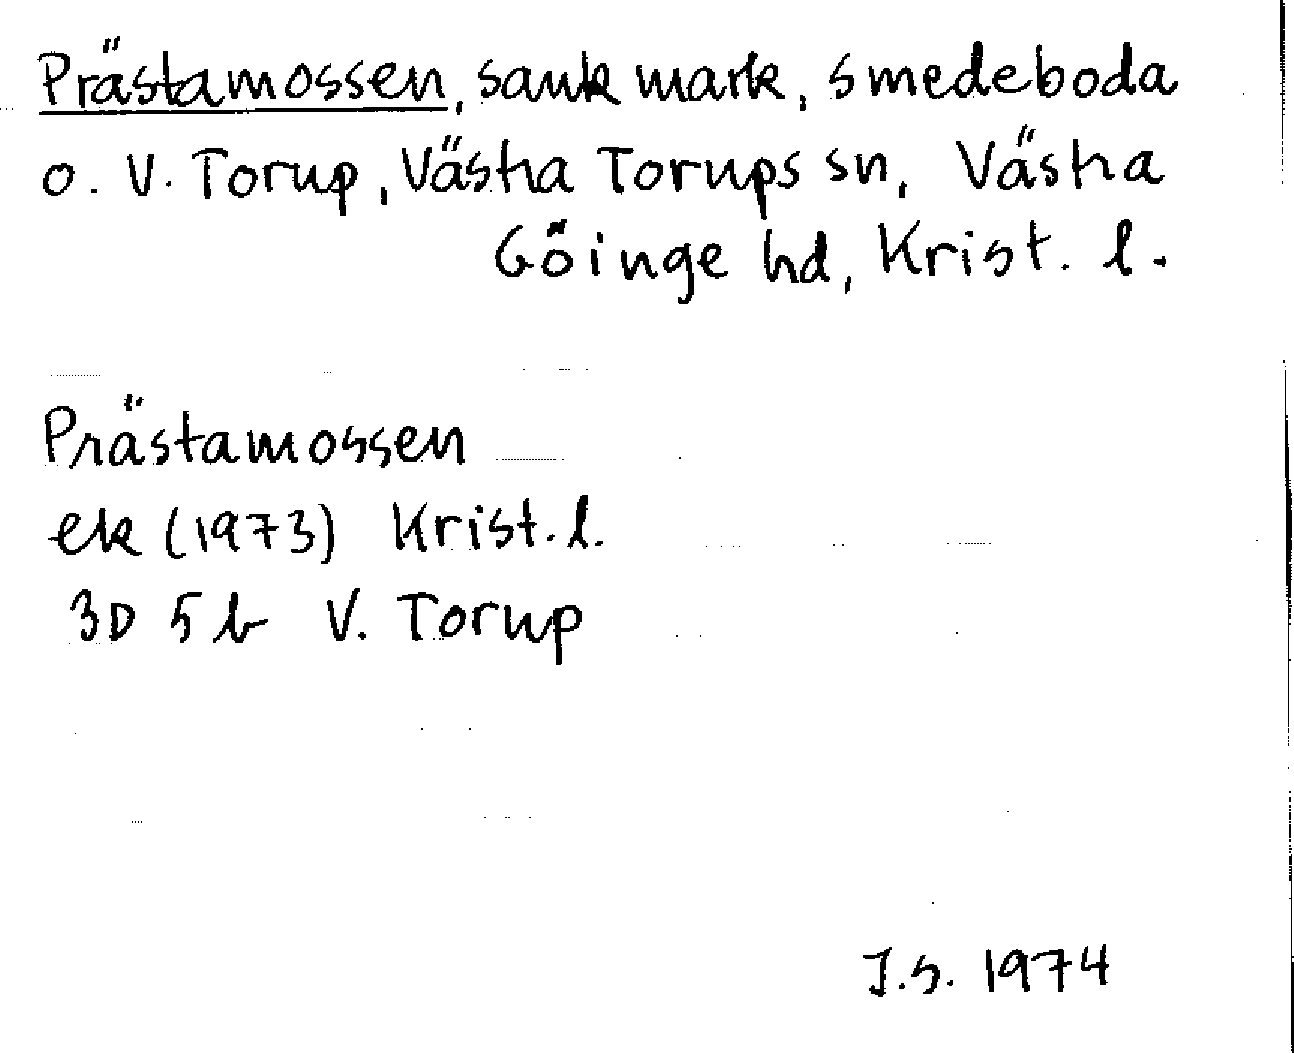 Prästamossen, sank mark, Smedeboda
o. V. Torup, Västra Torups sn, Västra
Göinge hd, Krist. l.
Prästamossen
ek (1973) Krist. l.
3D 5b V. Torup
J.S. 1974